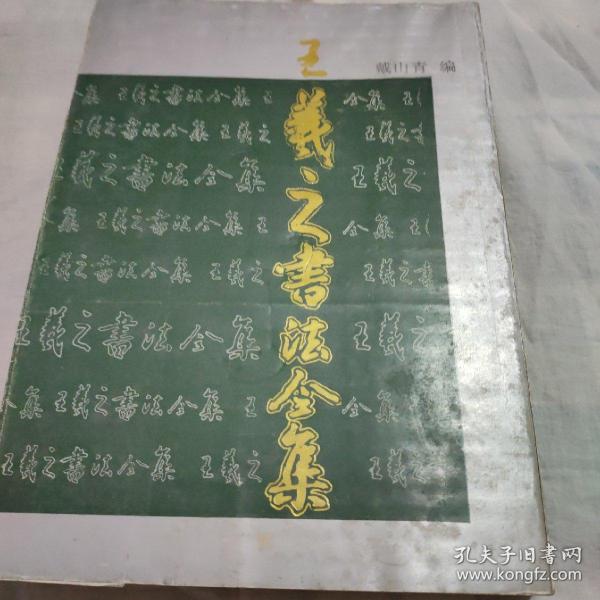 王羲之書法全集
戴山青 编
全集 王羲之書法全集 王
全集 王
王羲之書法全集 王羲之
王羲之書
羲之書法全集
王羲之
集 王羲之書法全集 王
全集 王
王羲之書法全集 王羲之
王羲之書
王羲之書法全集
王羲之
全集 王羲之書法全集 王
全集 王
王羲之書法全集 王羲之
王羲之
孔夫子旧书网
www.kongfz.com